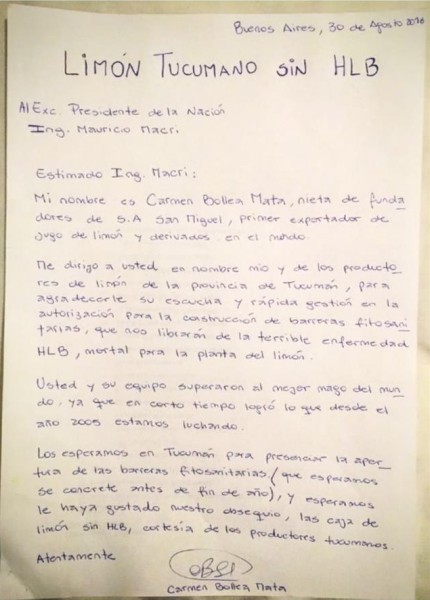 Buenos Aires, 30 de Agosto 2016
LIMÓN TUCUMANO SIN HLB
Al Exc. Presidente de la Nación
Ing. Mauricio Macri
Estimado Ing. Macri:
Mi nombre es Carmen Bollea Mata, nieta de funda
dores de S.A San Miguel, primer exportador de
jugo de limón y derivados en el mundo.
Me dirijo a usted en nombre mio y de los producto
res de limón de la provincia de Tucumán, para
agradecerle su escucha y rápida gestión en la
autorización para la construcción de barreras fitosani
tarias, que nos librarán de la terrible enfermedad
HLB, mortal para la planta del limón.
Usted y su equipo superaron al mejor mago del mun
do, ya que en corto tiempo logró lo que desde el
año 2005 estamos luchando.
Los esperamos en Tucumán para presenciar la aper
tura de las barreras fitosanitarias (que esperamos
se concrete antes de fin de año), y esperamos
le haya gustado nuestro obsequio, las caja de
limón sin HLB, cortesía de los productores tucumanos.
Atentamente
Carmen Bollea Mata